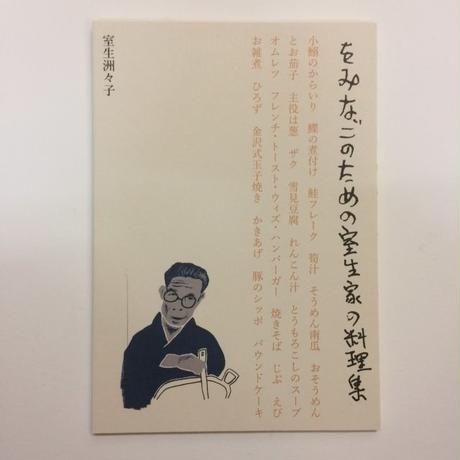 をみなごのための室生家の料理集
小鰯のからいり 鰈の煮付け 鮭フレーク 筍汁 そうめん南瓜 おそうめん
とお茄子 主役は葱 ザク 雪見豆腐 れんこん汁 とうもろこしのスープ
オムレツ フレンチ・トースト・ウィズ・ハンバーガー 焼きそば じぶ えび
お雑煮 ひろず 金沢式玉子焼き かきあげ 豚のシッポ パウンドケーキ
室生洲々子